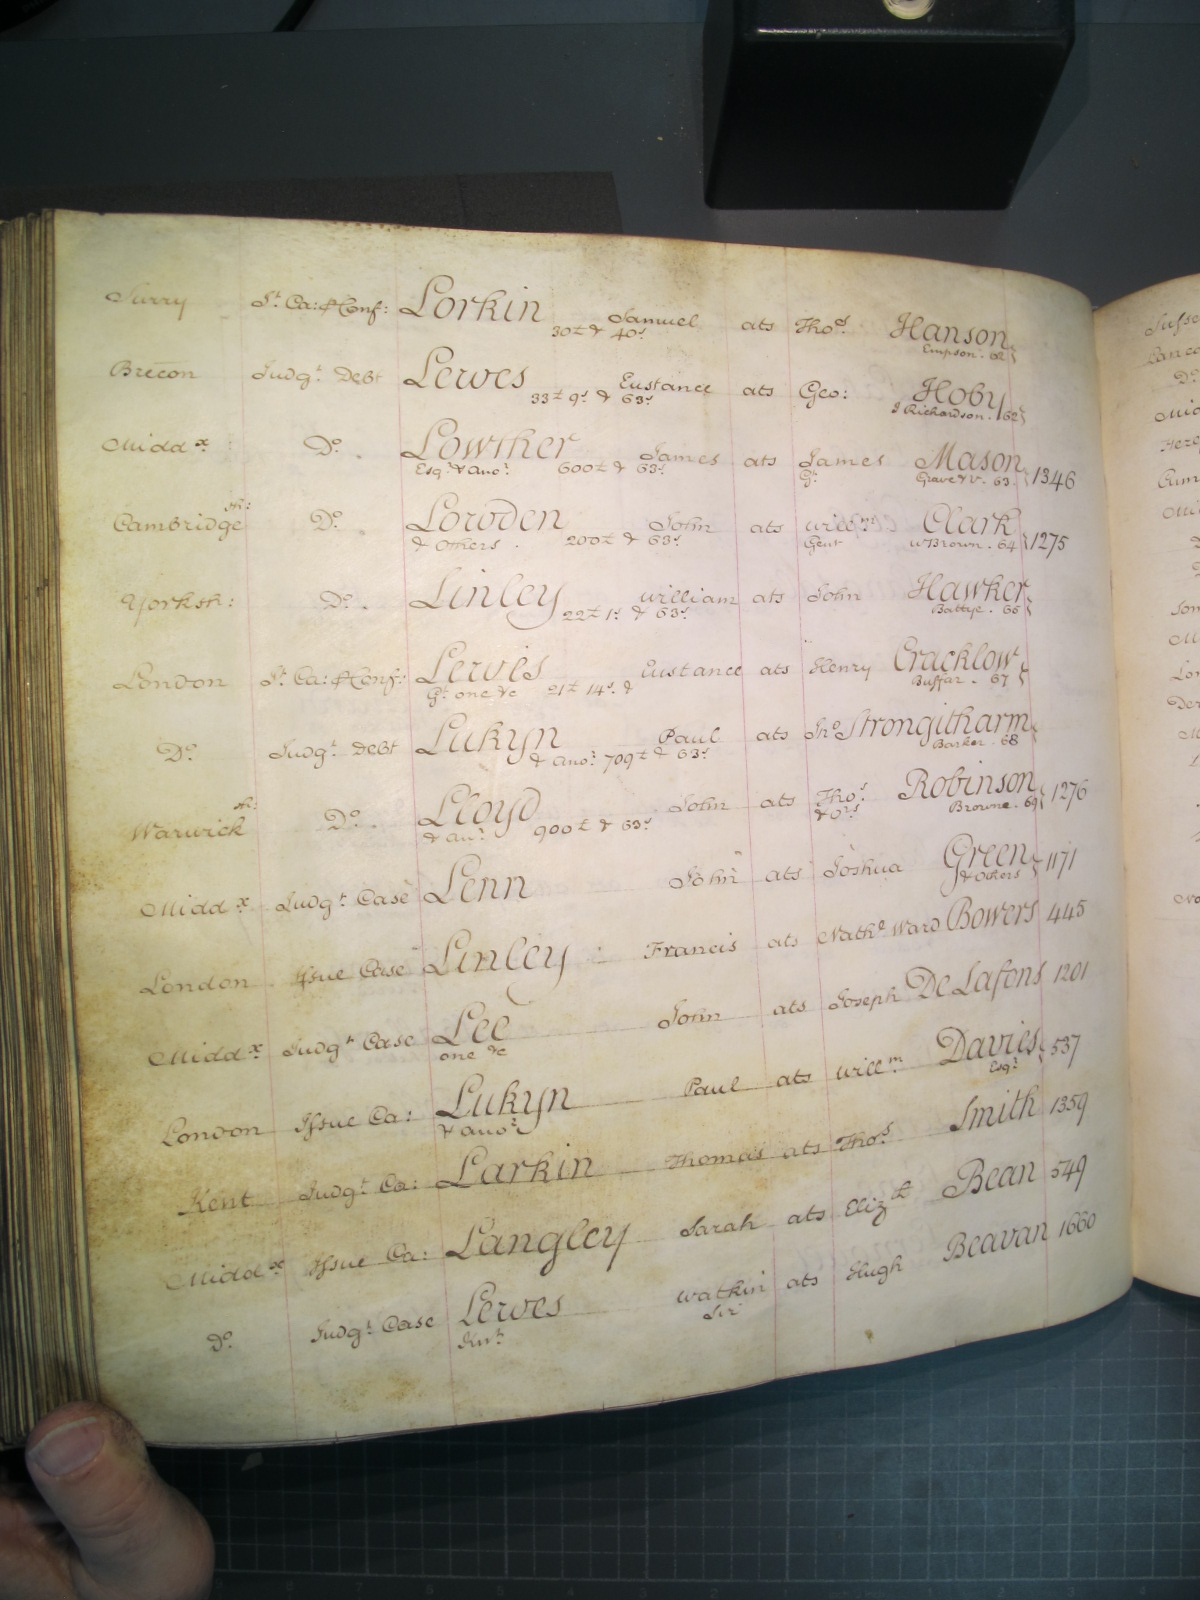 Surry St. Ca: & Conf: Lorkin Samuel ats Thos. Hanson
30£ & 40s. Empson. 62
Brecon Judgt. Debt Lewes Eustance ats Geo: Hoby
33£ 9s & 63s. J Richardson. 62
Middx. Do. Lowther James ats James Mason 1346
Esqr. & anor. 600£ & 63s. Gt. Grave & V. 63.
Cambridge sh: Do. Lowden John ats Willm. Clark 1275
& Others. 200£ & 63s. Gent W Brown. 64
Yorksh: Do. Linley William ats John Hawker
22£ 1s. & 63s. Battye. 66
London St. Ca: & Conf: Lewes Eustance ats Henry Cracklow
Gt. one &c 21£ 14s. & Buffar. 67
Do. Judgt. Debt Lukyn Paul ats Jno Strongitharm
& anor. 709£ & 63s. Barker. 68
Warwick sh: Do. Lloyd John ats Thos. Robinson 1276
& anr. 900£ & 63s. & ors. Browne. 69
Middx. Judgt. Case Lenn John ats Joshua Green 1171
& Others
London Issue Case Linley Francis ats Nathl Ward Bowers 445
Middx. Judgt. Case Lee John ats Joseph De Lafons 1201
one &c
London Issue Ca: Lukyn Paul ats Willm. Davies 537
& anor. Esqr.
Kent Judgt. Ca: Larkin Thomas ats Thos. Smith 1359
Middx. Issue Ca: Langley Sarah ats Elizth. Bean 549
Do. Judgt. Case Lewes Watkin ats Hugh Beavan 1660
Knt. Sir